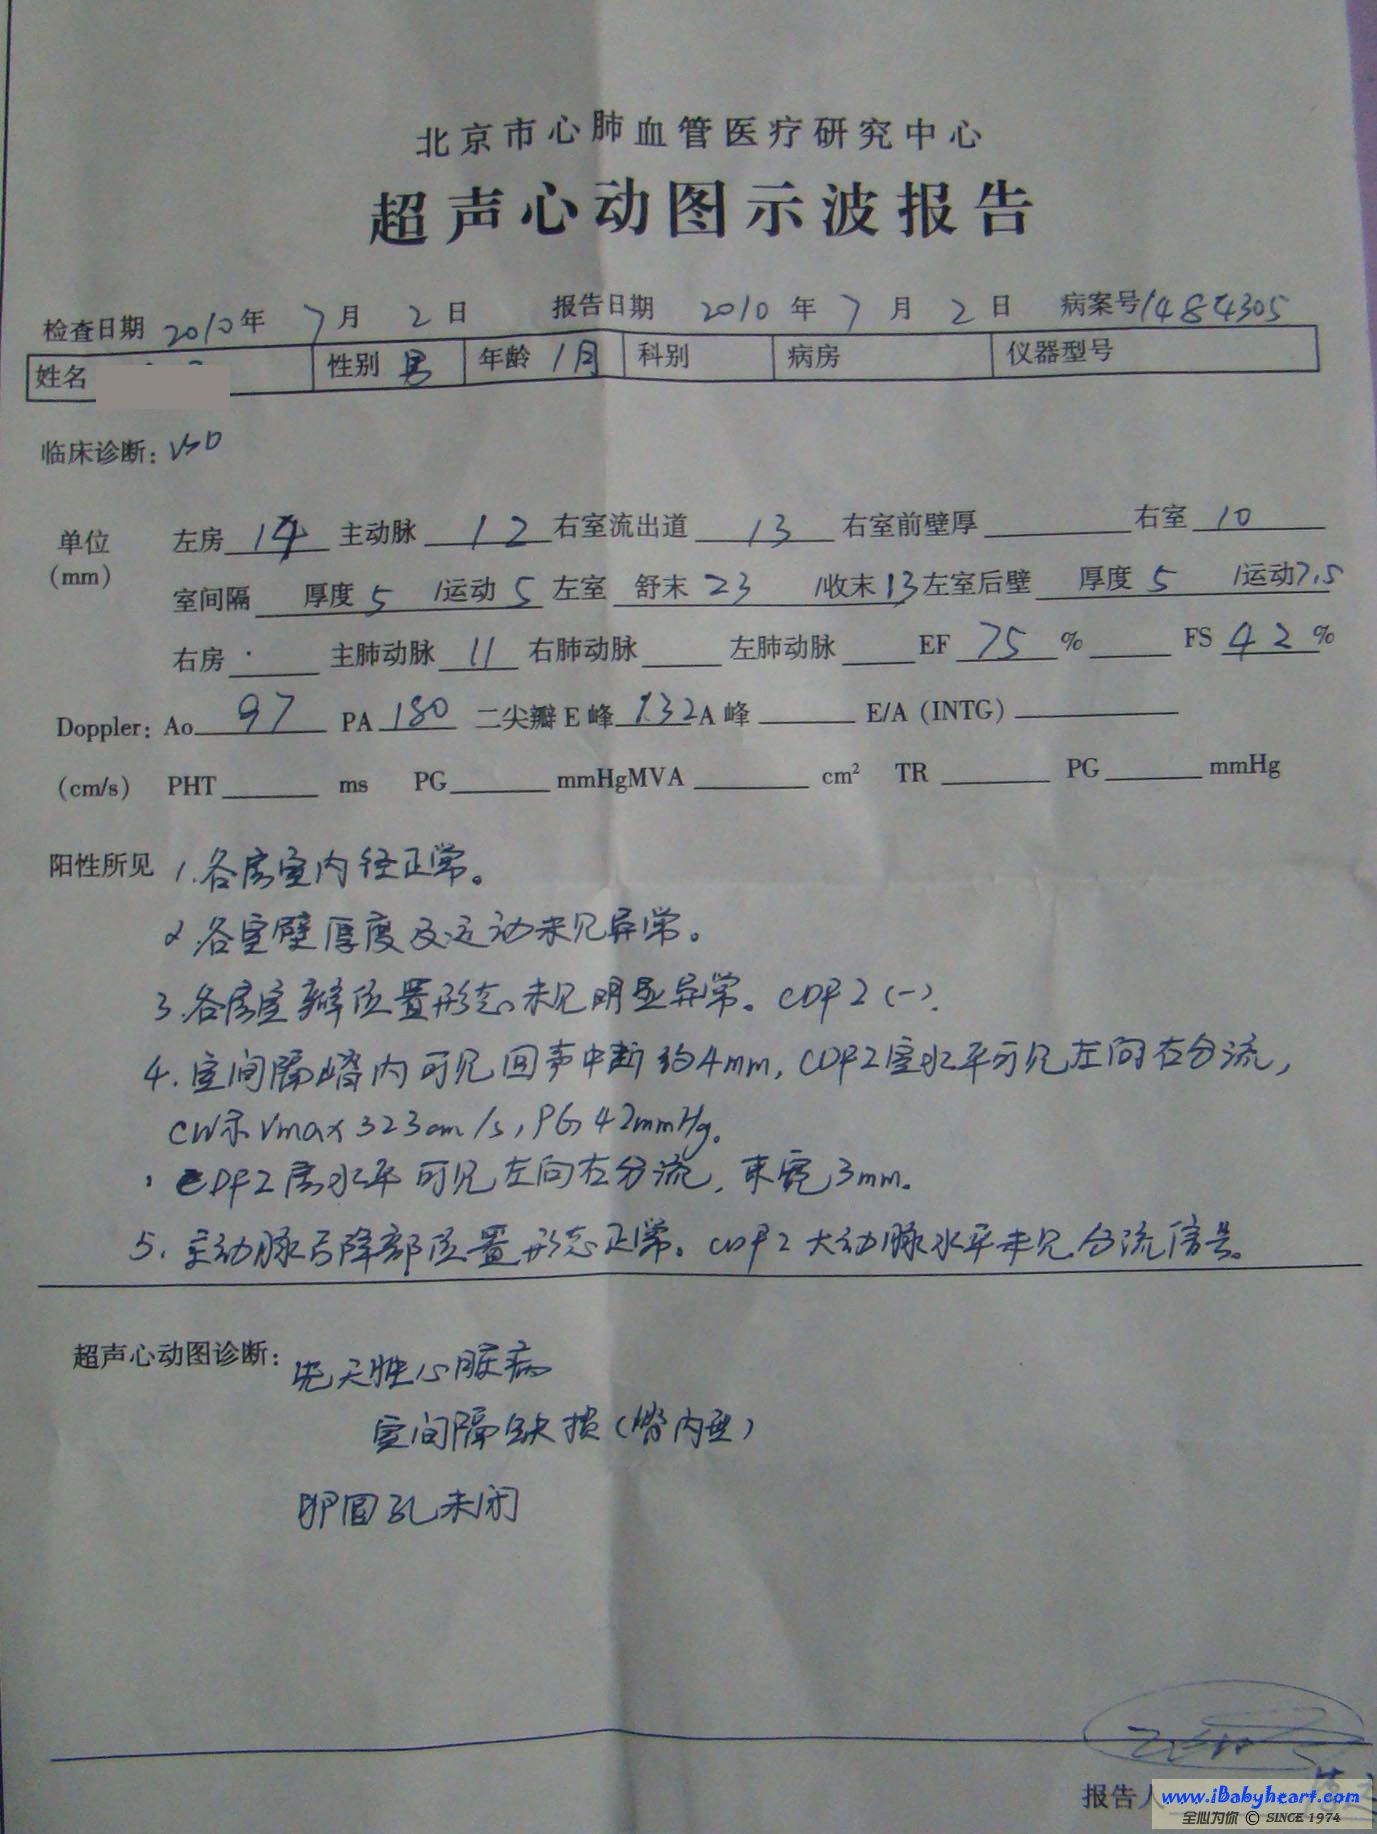 北京市心肺血管医疗研究中心
超声心动图示波报告
检查日期 2010年 7月 2日 报告日期 2010年 7月 2日 病案号1484305
姓名 性别 男 年龄 1月 科别 病房 仪器型号
临床诊断: VSD
单位 左房 14 主动脉 12 右室流出道 13 右室前壁厚 右室 10
(mm) 室间隔 厚度 5 /运动 5 左室 舒末 23 /收末 13 左室后壁 厚度 5 /运动7.5
右房 主肺动脉 11 右肺动脉 左肺动脉 EF 75 % FS 42 %
Doppler: Ao 97 PA 180 二尖瓣 E 峰 132 A 峰 E/A (INTG)
(cm/s) PHT ms PG mmHgMVA cm² TR PG mmHg
阳性所见 1.各房室内径正常。
2.各室壁厚度及运动未见异常。
3.各房室瓣位置形态未见明显异常。CDFI(-).
4.室间隔嵴内可见回声中断约4mm,CDFI室水平可见左向右分流,
CW示Vmax 323cm/s,PG 42mmHg。
CDFI房水平可见左向右分流,束宽3mm。
5.主动脉弓降部位置形态正常。CDFI大动脉水平未见分流信号。
超声心动图诊断:
先天性心脏病
室间隔缺损(嵴内型)
卵圆孔未闭
报告人
www.iBabyheart.com
全心为你 © SINCE 1974